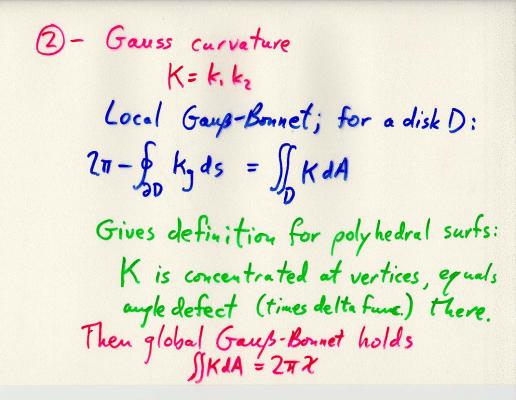 ② - Gauss curvature
K = k₁ k₂
Local Gauß-Bonnet; for a disk D:
2π - ∮_∂D kg ds = ∬_D K dA
Gives definition for polyhedral surfs:
K is concentrated at vertices, equals
angle defect (times delta func.) there.
Then global Gauß-Bonnet holds
∬ K dA = 2π χ